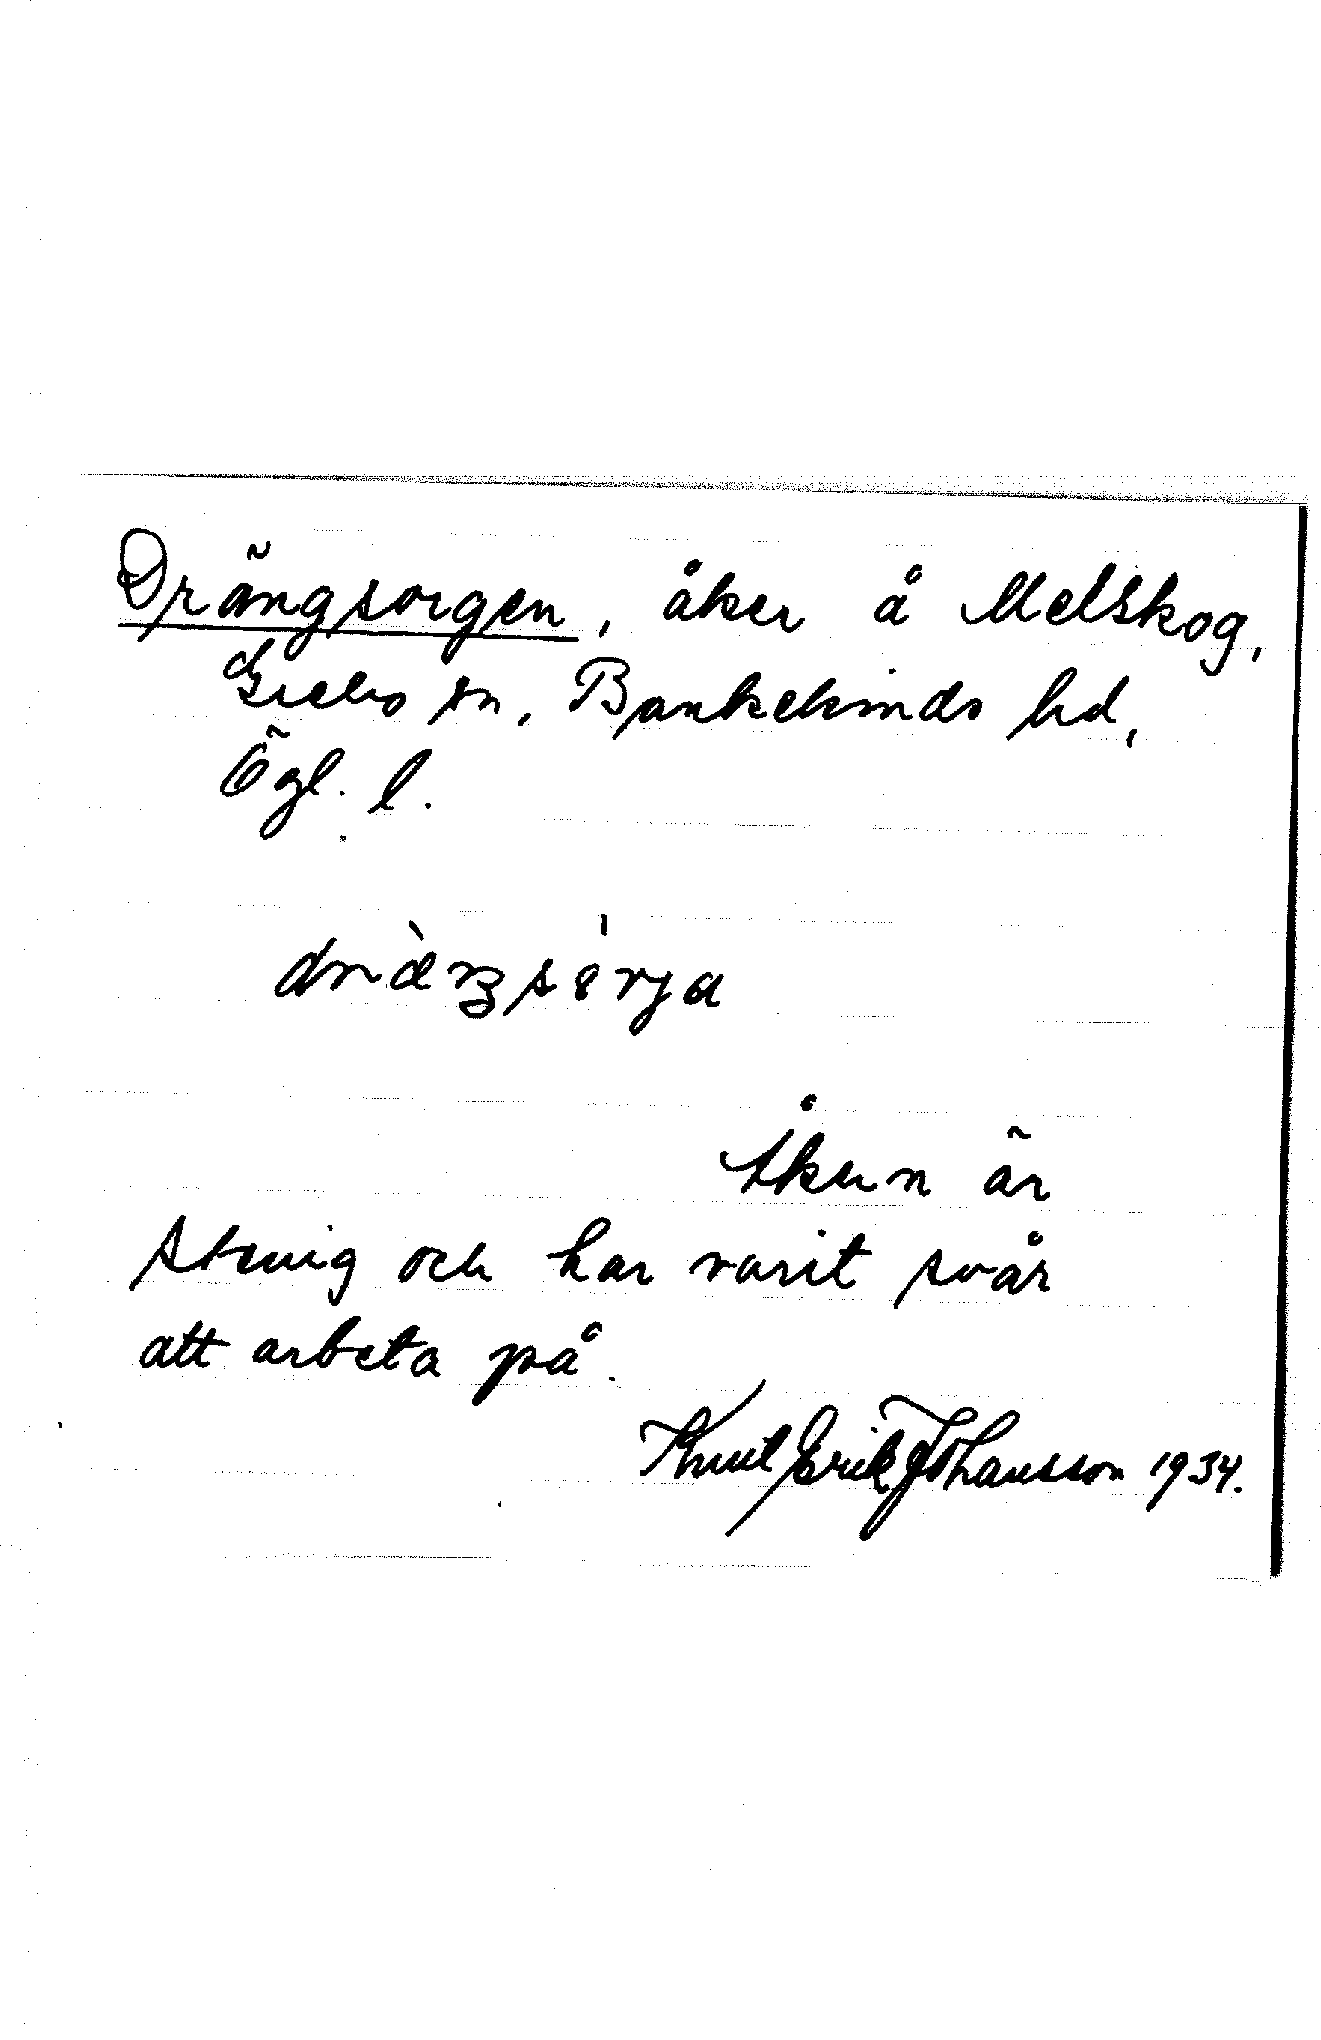 Drängsorgen, åker å Melskog,
Grebo sn, Bankekinds hd,
Ögl. l.
Åkern är
stenig och har varit svår
att arbeta på.
Knut Erik Johansson 1934.